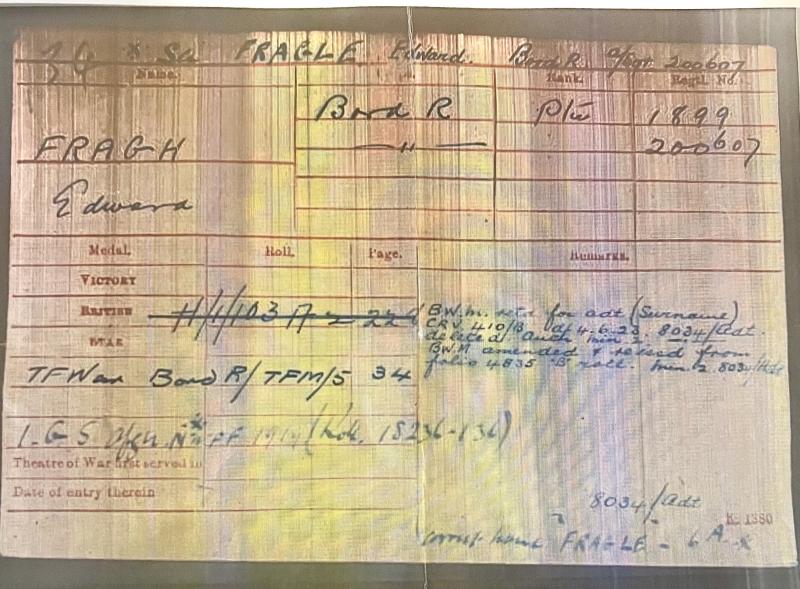 FRAGLE Edward. Bord R 200607
Name. Rank. Regtl. No.
Bord R Pte 1899
FRAGH — " — 200607
Edward
Medal. Roll. Page. Remarks.
VICTORY
BRITISH H/1/103 A 2 224
WAR
B.W.M. retd for adt (Surname)
CRV 410/B d/ 4.6.23. 8034/adt.
deleted auth min 2
BWM amended & reissd from
folio 4835 B roll. Min 2. 8034/Adt
TFWar Bord R/TFM/5 34
I.G.S. Afgn. N.W.FF 1919 (Roll. 18236-136)
Theatre of War first served in
Date of entry therein
8034/adt
K. 1380
correct name FRAGLE - 6 A. x